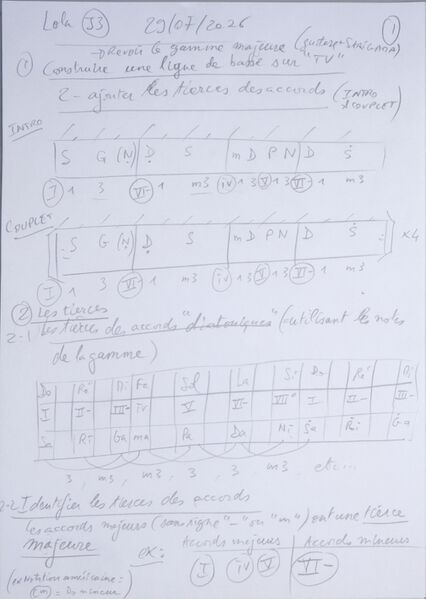 Lola J3 29/07/2026 ①
→ Revoir la gamme majeure (guitare + SARGAM)
① Construire une ligne de basse sur "TV"
2 - ajouter les tierces des accords (INTRO & COUPLET)
INTRO
S G (N) D S m D P N D S
I 1 3 VI- 1 m3 IV 1 3 V 1 3 VI- 1 m3
COUPLET
S G (N) D S m D P N D S x4
I 1 3 VI- 1 m3 IV 1 3 V 1 3 VI- 1 m3
② Les tierces
2-1 Les tierces des accords "diatoniques" (utilisant les notes
de la gamme)
Do Ré Mi Fa Sol La Si Do Ré Mi
I II- III- IV V VI- VII° I II- III-
Sa Ri Ga ma Pa Da Ni Sa Ri Ga
3, m3, m3, 3, 3, m3, etc...
2-2 Identifier les tierces des accords
les accords majeurs (sans signe "-" ou "m") ont une tierce
majeure ex: Accords majeurs Accords mineurs
I IV V VI-
(ex notation américaine :
Cm = Do mineur)